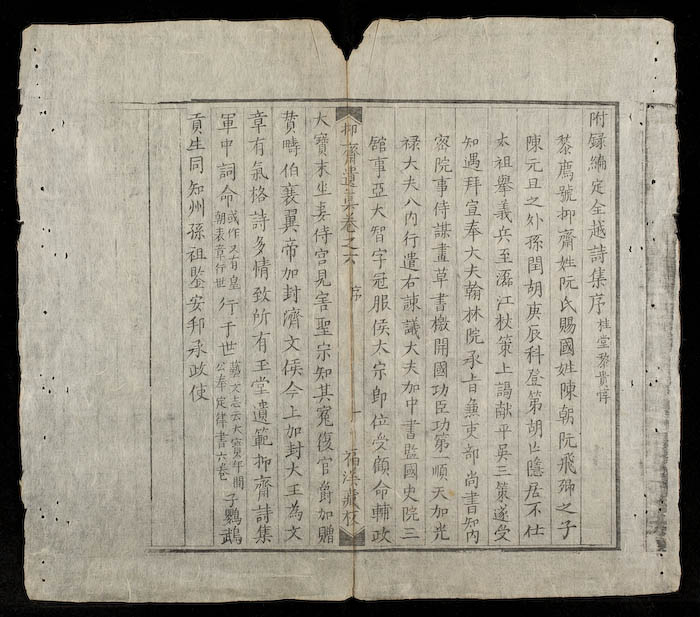 附録編定全越詩集序 桂堂黎貴惇
黎廌號抑齋姓阮氏賜國姓陳朝阮飛卿之子
陳元旦之外孫閏胡庚辰科登第胡亡隱居不仕
太祖舉義兵至潺江杖策上謁献平吳三策遂受
知遇拜宣奉大夫翰林院承旨兼吏部尚書知內
密院事侍謀畫草書檄開國功臣功第一順天加光
禄大夫入內行遣右諫議大夫加中書監國史院三
舘事亞大智字冠服侯太宗即位受顧命輔政
抑齋遺集卷之六 序 十 福溪藏板
大寶末坐妾侍宮見害聖宗知其冤復官爵加贈
黄疇伯襄翼帝加封濟文侯今上加封大王為文
章有氣格詩多情致所有玉堂遺範抑齋詩集
軍中詞命 或作又有皇朝表章行世 行于世 藝文志云大寶年間公奉定律書六卷 子鸚鵡
貢生同知州孫祖鑒安邦承政使